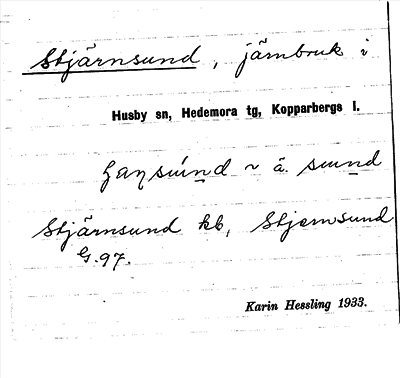 Stjärnsund, järnbruk i
Husby sn, Hedemora tg, Kopparbergs l.
ä. sund
Stjärnsund kb, Stjernsund
G. 97.
Karin Hessling 1933.